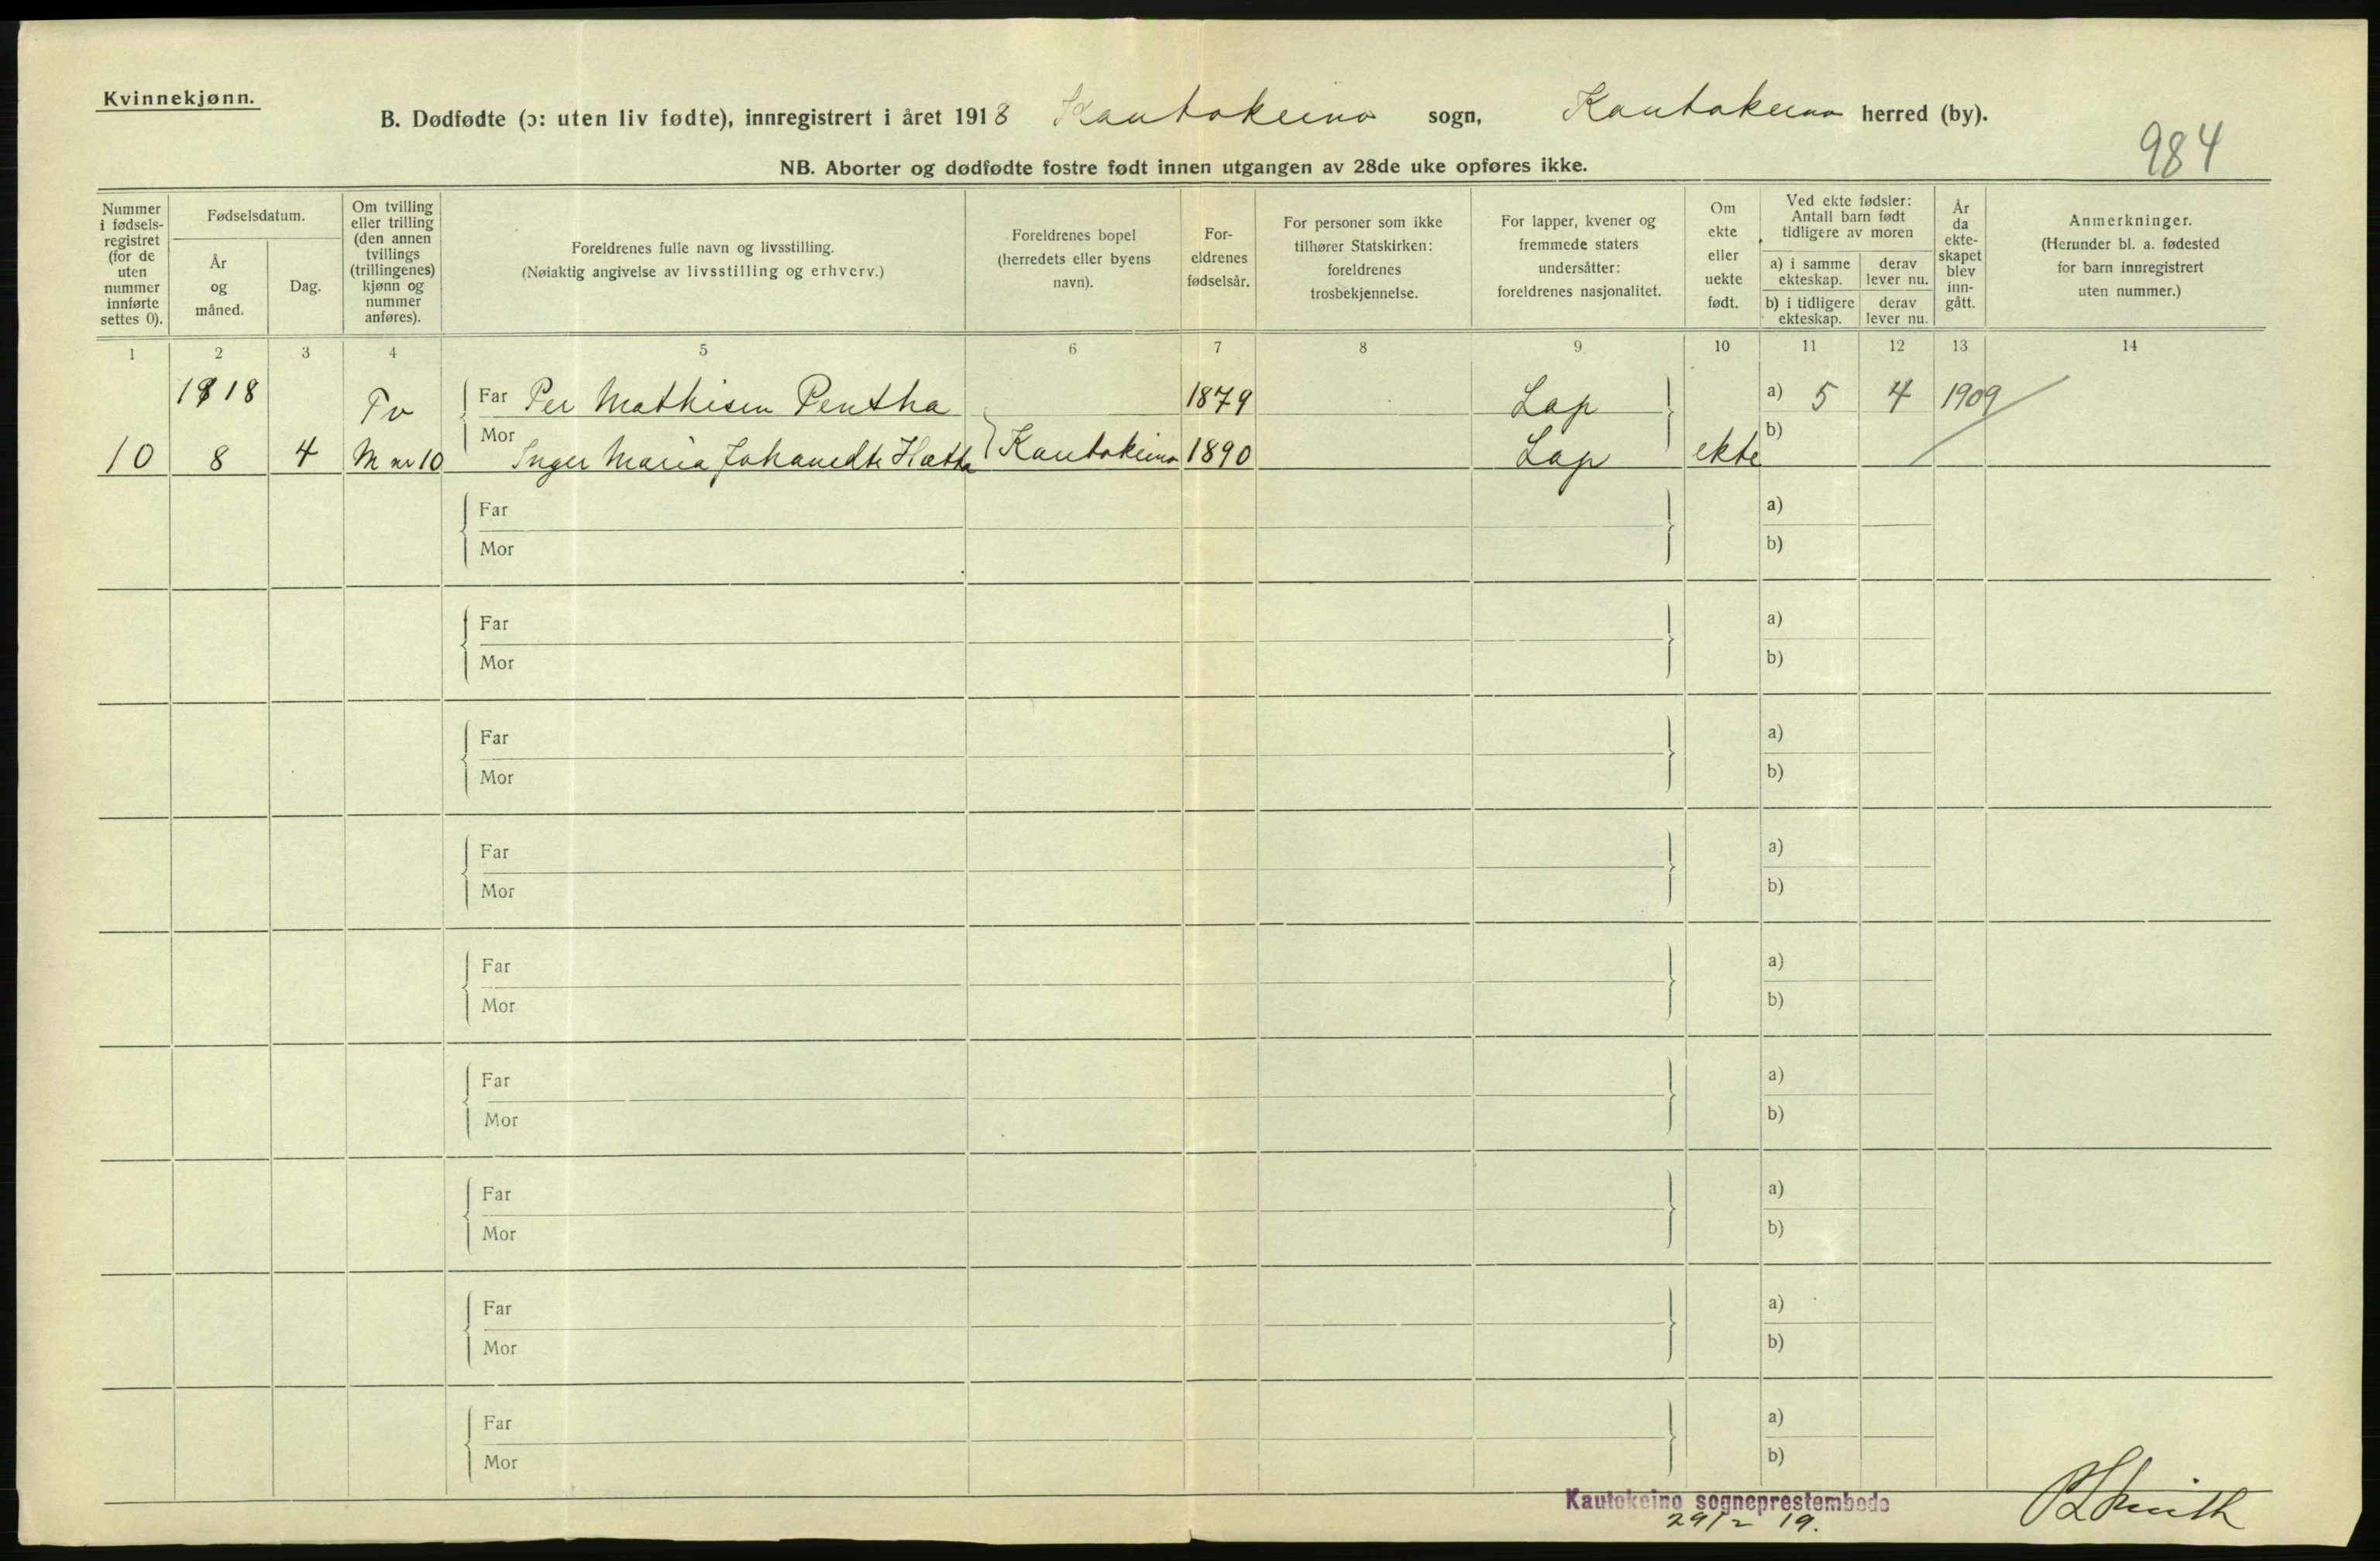 Kvinnekjønn.
B. Dødfødte (ɔ: uten liv fødte), innregistrert i året 1918 Kautokeino sogn, Kautokeino herred (by).
984
NB. Aborter og dødfødte fostre født innen utgangen av 28de uke opføres ikke.
Nummer
i fødsels-
registret
(for de
uten
nummer
innførte
settes 0).
Fødselsdatum.
År
og
måned.
Dag.
Om tvilling
eller trilling
(den annen
tvillings
(trillingenes)
kjønn og
nummer
anføres).
Foreldrenes fulle navn og livsstilling.
(Nøiaktig angivelse av livsstilling og erhverv.)
Foreldrenes bopel
(herredets eller byens
navn).
For-
eldrenes
fødselsår.
For personer som ikke
tilhører Statskirken:
foreldrenes
trosbekjennelse.
For lapper, kvener og
fremmede staters
undersåtter:
foreldrenes nasjonalitet.
Om
ekte
eller
uekte
født.
Ved ekte fødsler:
Antall barn født
tidligere av moren
a) i samme
ekteskap.
derav
lever nu.
b) i tidligere
ekteskap.
derav
lever nu.
År
da
ekte-
skapet
blev
inn-
gått.
Anmerkninger.
(Herunder bl. a. fødested
for barn innregistrert
uten nummer.)
1 2 3 4 5 6 7 8 9 10 11 12 13 14
1918 Tv Far Per Mathisen Pentha 1879 Lap a) 5 4 1909
10 8 4 M nr 10 Mor Inger Maria Johansdtr Hætta Kautokeino 1890 Lap ekte b)
Far a)
Mor b)
Far a)
Mor b)
Far a)
Mor b)
Far a)
Mor b)
Far a)
Mor b)
Far a)
Mor b)
Far a)
Mor b)
Far a)
Mor b)
Far a)
Mor b)
Kautokeino sogneprestembede
29/2 19.
Smith